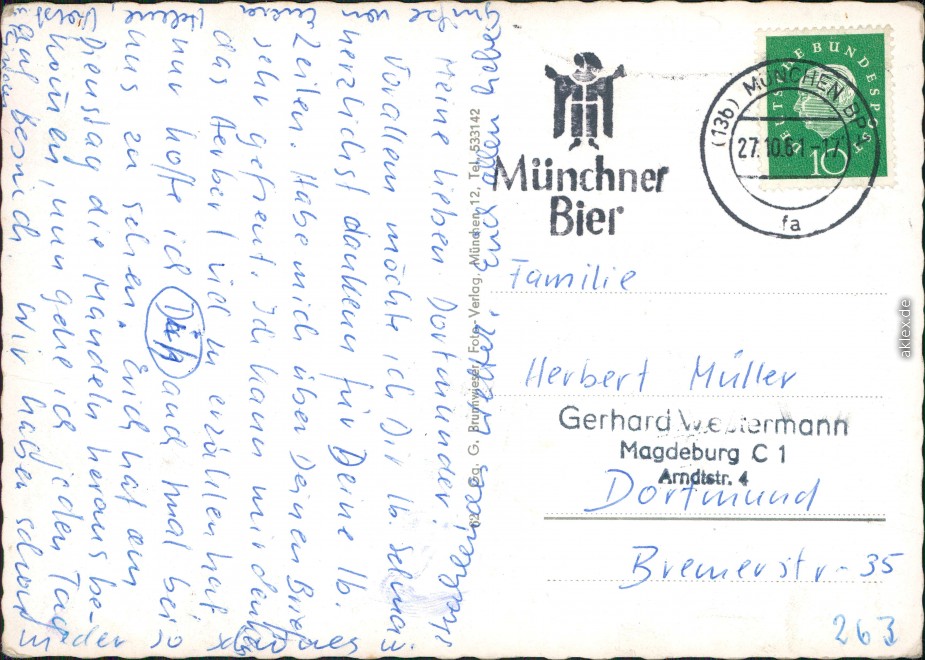 Meine lieben Dortmunder!
Vorallem möchte ich Dir lb.
herzlichst danken für Deine lb.
Zeilen. Habe mich über Deinen Brief
sehr gefreut. Ich kann mir denken
das Herbert viel zu erzählen hat
nur hoffe ich Dich auch mal bei
uns zu sehen. Erich hat am
Dienstag die Mandeln heraus be-
kommen, nun gehe ich jeden Tag
auf Besuch. Wir haben schon
wieder so
Wetter. Euch allen liebe
Grüße von
Eurer
Helene
Münchner
Bier
DEUTSCHE BUNDESPOST
10
(13b) MÜNCHEN BP
27.10.61-17
fa
Familie
Herbert Müller
Gerhard Westermann
Magdeburg C 1
Arndtstr. 4
Dortmund
Bremerstr. 35
263
G. Brumwieser, Foto-Verlag, München 12, Tel. 533142
aklex.de